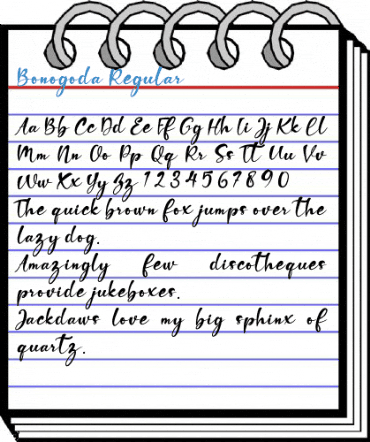 Bonogoda Regular
Aa Bb Cc Dd Ee Ff Gg Hh Ii Jj Kk Ll
Mm Nn Oo Pp Qq Rr Ss Tt Uu Vv
Ww Xx Yy Zz 1234567890
The quick brown fox jumps over the
lazy dog.
Amazingly few discotheques
provide jukeboxes.
Jackdaws love my big sphinx of
quartz.